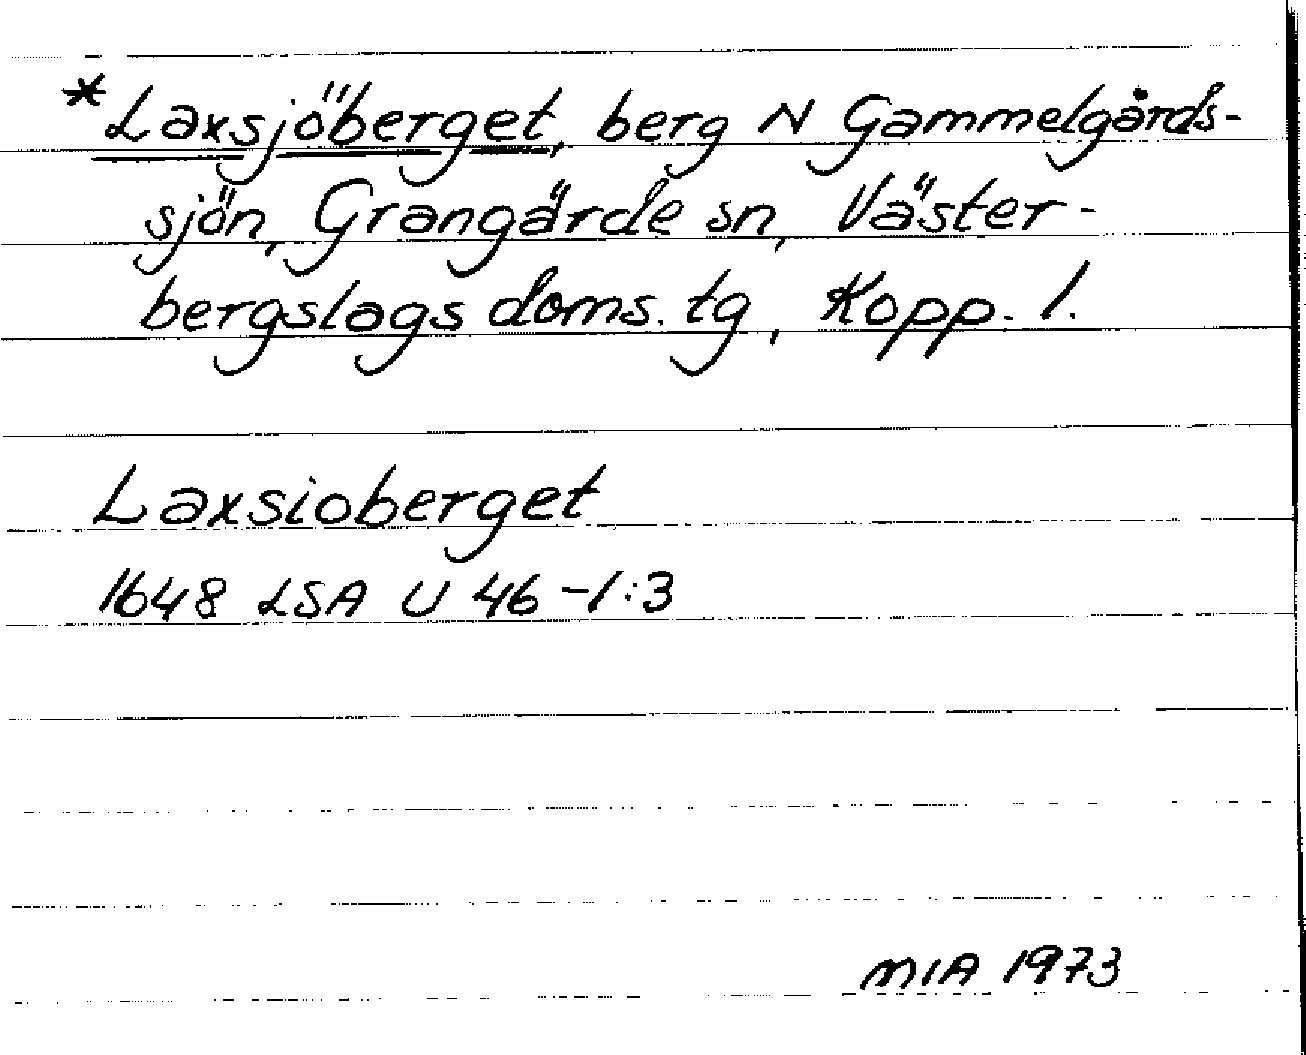 *Laxsjöberget, berg N Gammelgårds-
sjön, Grangärde sn, Väster-
bergslags doms. tg, Kopp. l.
Laxsioberget
1648 LSA U 46-1:3
MIA 1973